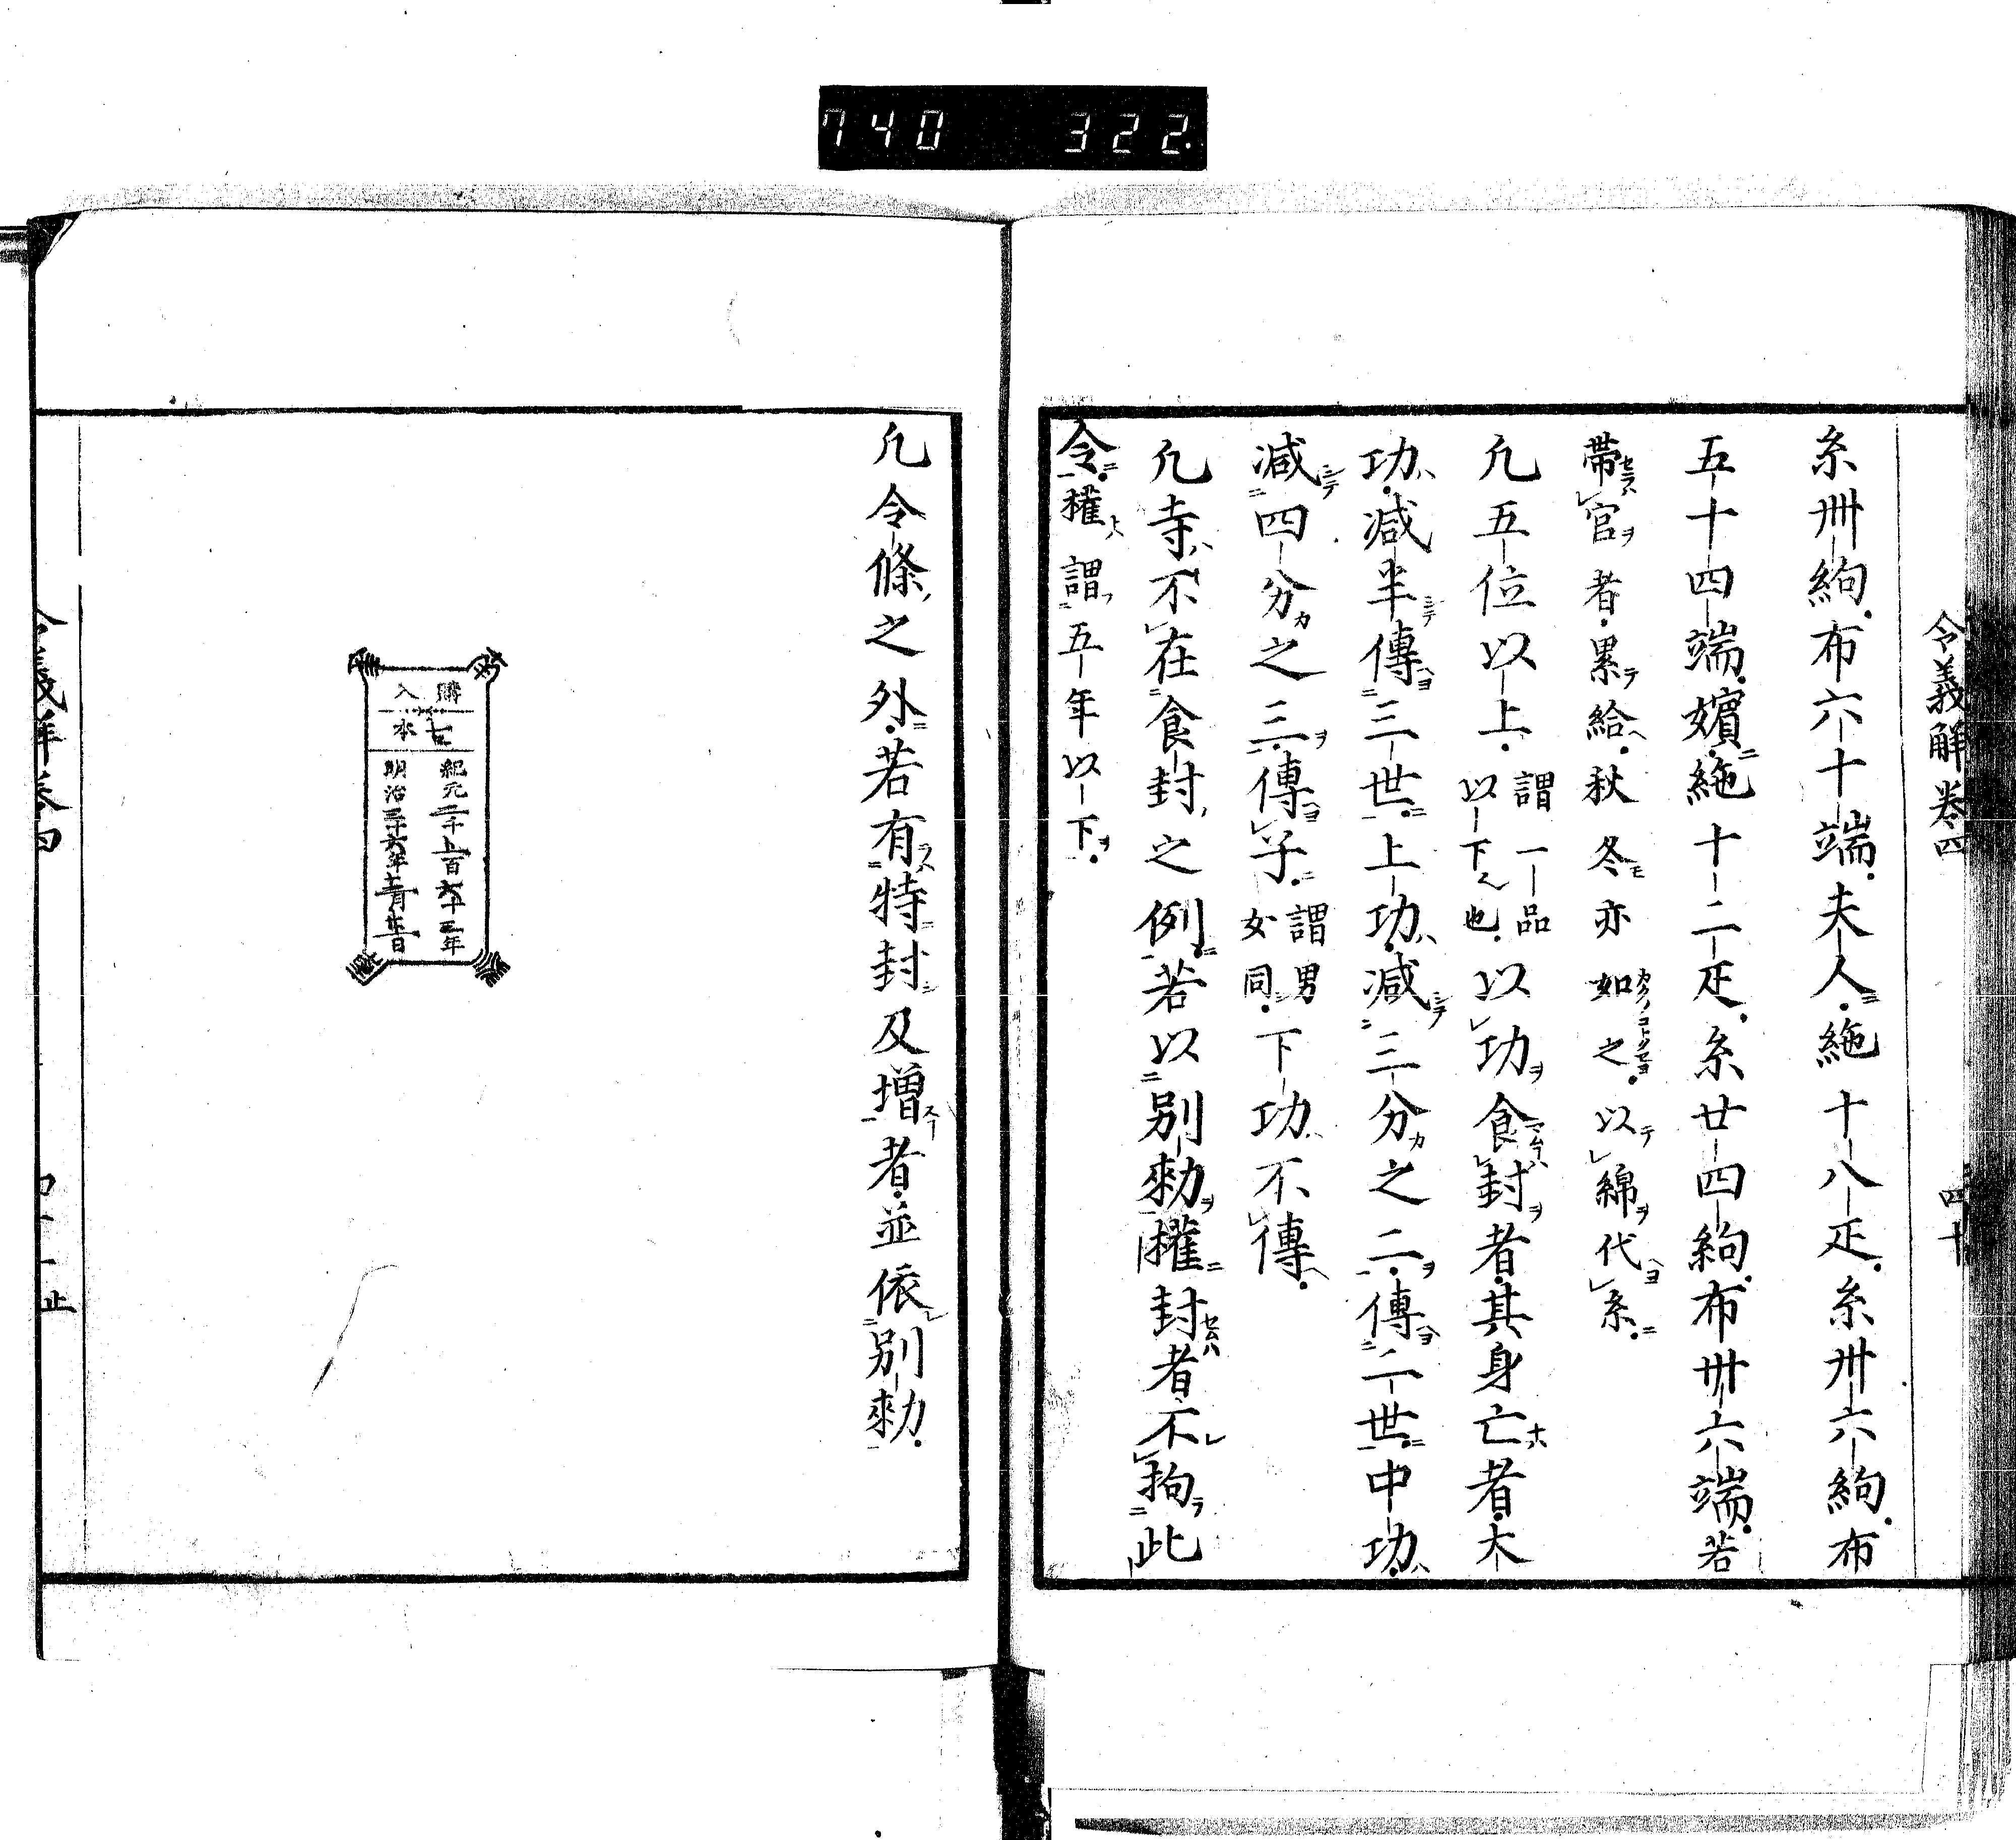 740 322
令義解卷四 四十
糸卌絇布六十端夫人絁十八疋糸卅六絇布
五十四端嬪絁十二疋糸廿四絇布卌六端若
帶官者累給秋冬亦如之以綿代糸
凢五位以上謂一品以下也以功食封者其身亡者大
功減半傳三世上功減三分之二傳二世中功
減四分之三傳子謂男女同下功不傳
凢寺不在食封之例若以別勅權封者不拘此
令權謂五年以下
凢令條之外若有特封及増者並依別勅
購入
紀元二千五百六十三年
明治三十六年